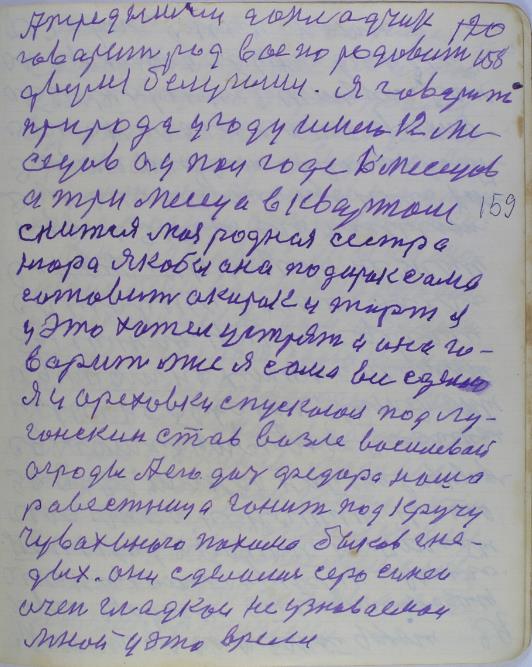 Апредыници докладчик 120
говарит род воено родовит 158
двумя белугими. Я говарит
природа угоду имеь 12 ме-
сецов а у пол годе 6 месецов
а три месеца в квартал 159
снитса моя родная сестра
юора Якобы она подарок сама
готовит окорок и торт я
у это хотел устрят а она го-
варит же я сама все сделаю
Я и ореховки спускаюс под лу-
гонским став возле василевай
огроды Его дач федара наша
равестница гонит под кручу
чувахиного пахома быков гне-
дых. они сделалис серо синеи
очен гладкои не узноваемои
мной у это время